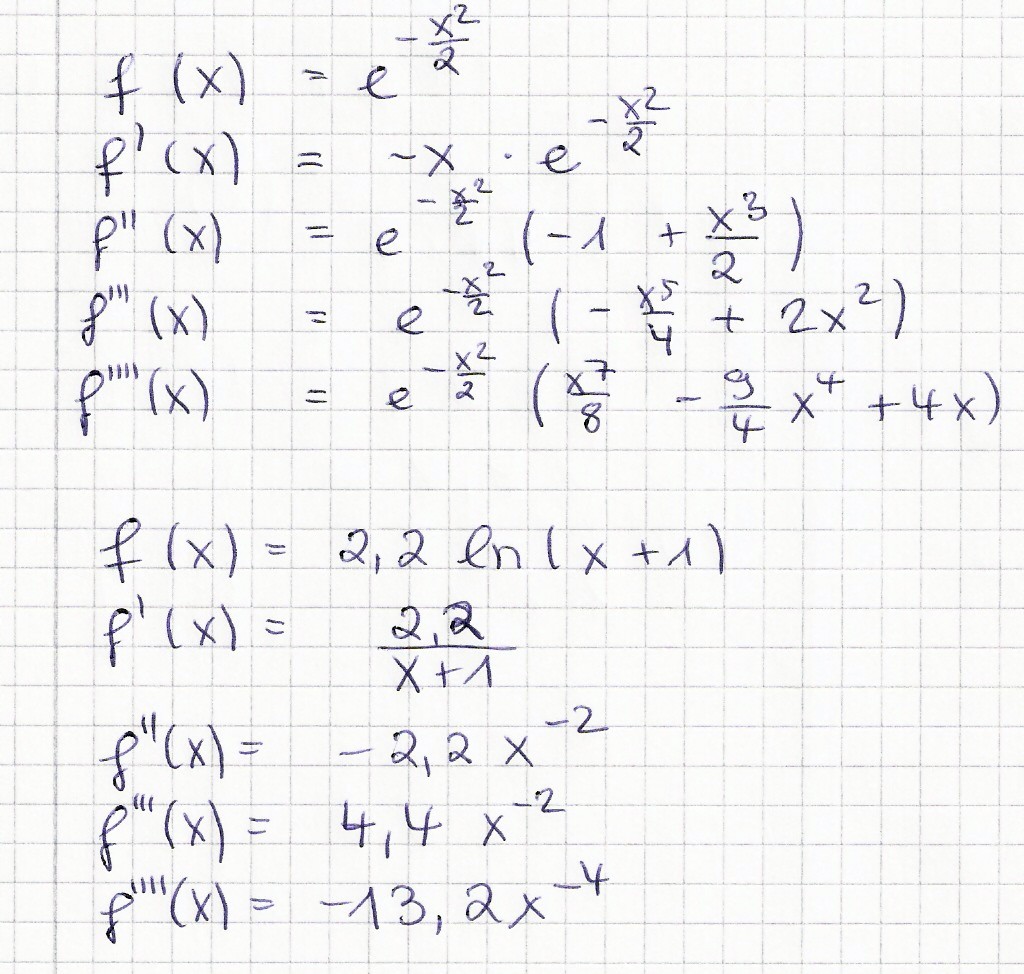 f (x) = e^(-x²/2)
f' (x) = -x · e^(-x²/2)
f'' (x) = e^(-x²/2) (-1 + x³/2)
f''' (x) = e^(-x²/2) (- x⁵/4 + 2x²)
f''''(x) = e^(-x²/2) (x⁷/8 - 9/4 x⁴ + 4x)
f (x) = 2,2 ln (x + 1)
f' (x) = 2,2/(x+1)
f''(x) = - 2,2 x⁻²
f'''(x) = 4,4 x⁻²
f''''(x) = -13,2x⁻⁴